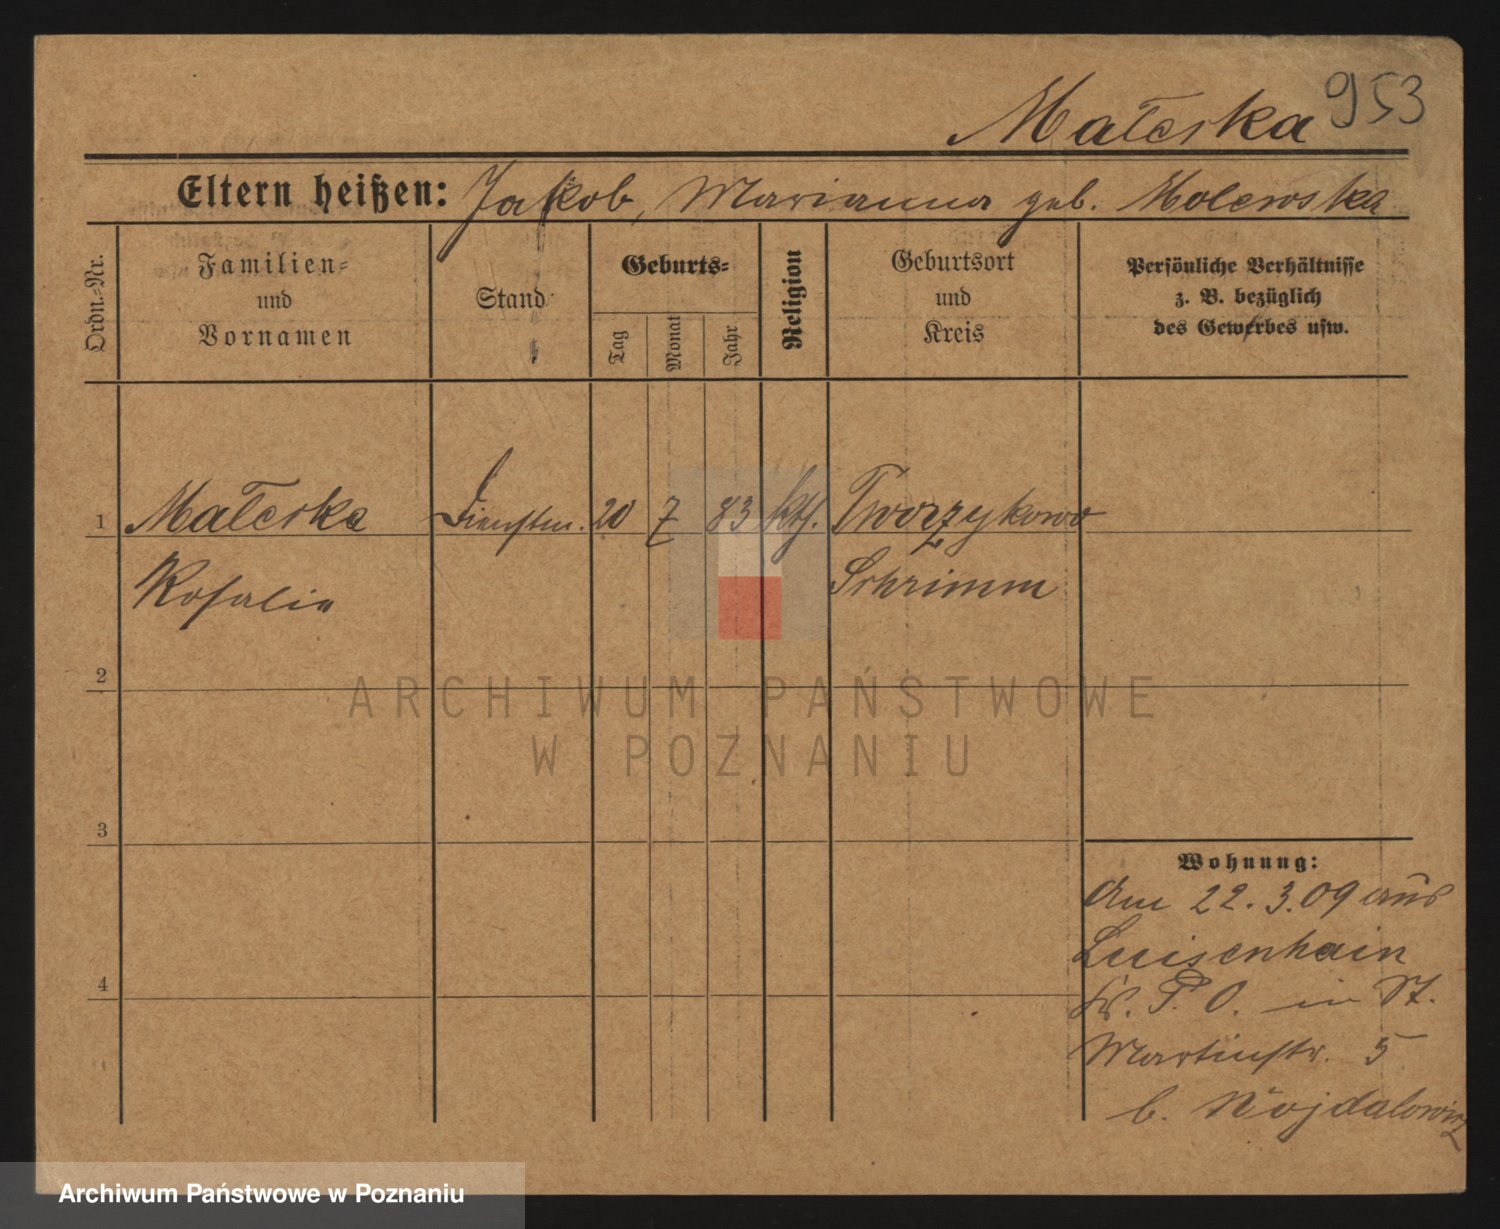 953
Małeska
Eltern heißen: Jakob, Marianna geb. Molewska
Ordn.-Nr.
Familien-
und
Vornamen
Stand
Geburts-
Tag
Monat
Jahr
Religion
Geburtsort
und
Kreis
Persönliche Verhältnisse
z. B. bezüglich
des Gewerbes usw.
1 Małeska Dienstm. 20 7 83 kth. Tworzykowo
Rosalie Schrimm
2
ARCHIWUM PAŃSTWOWE
W POZNANIU
3
Wohnung:
Am 22.3.09 aus
Luisenhain
Kr. P. O. in St.
4
Martinstr. 5
b. Nojdalowicz
Archiwum Państwowe w Poznaniu